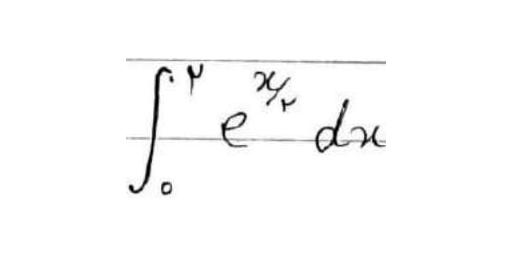 ∫₀^۲ e^(x/۲) dx